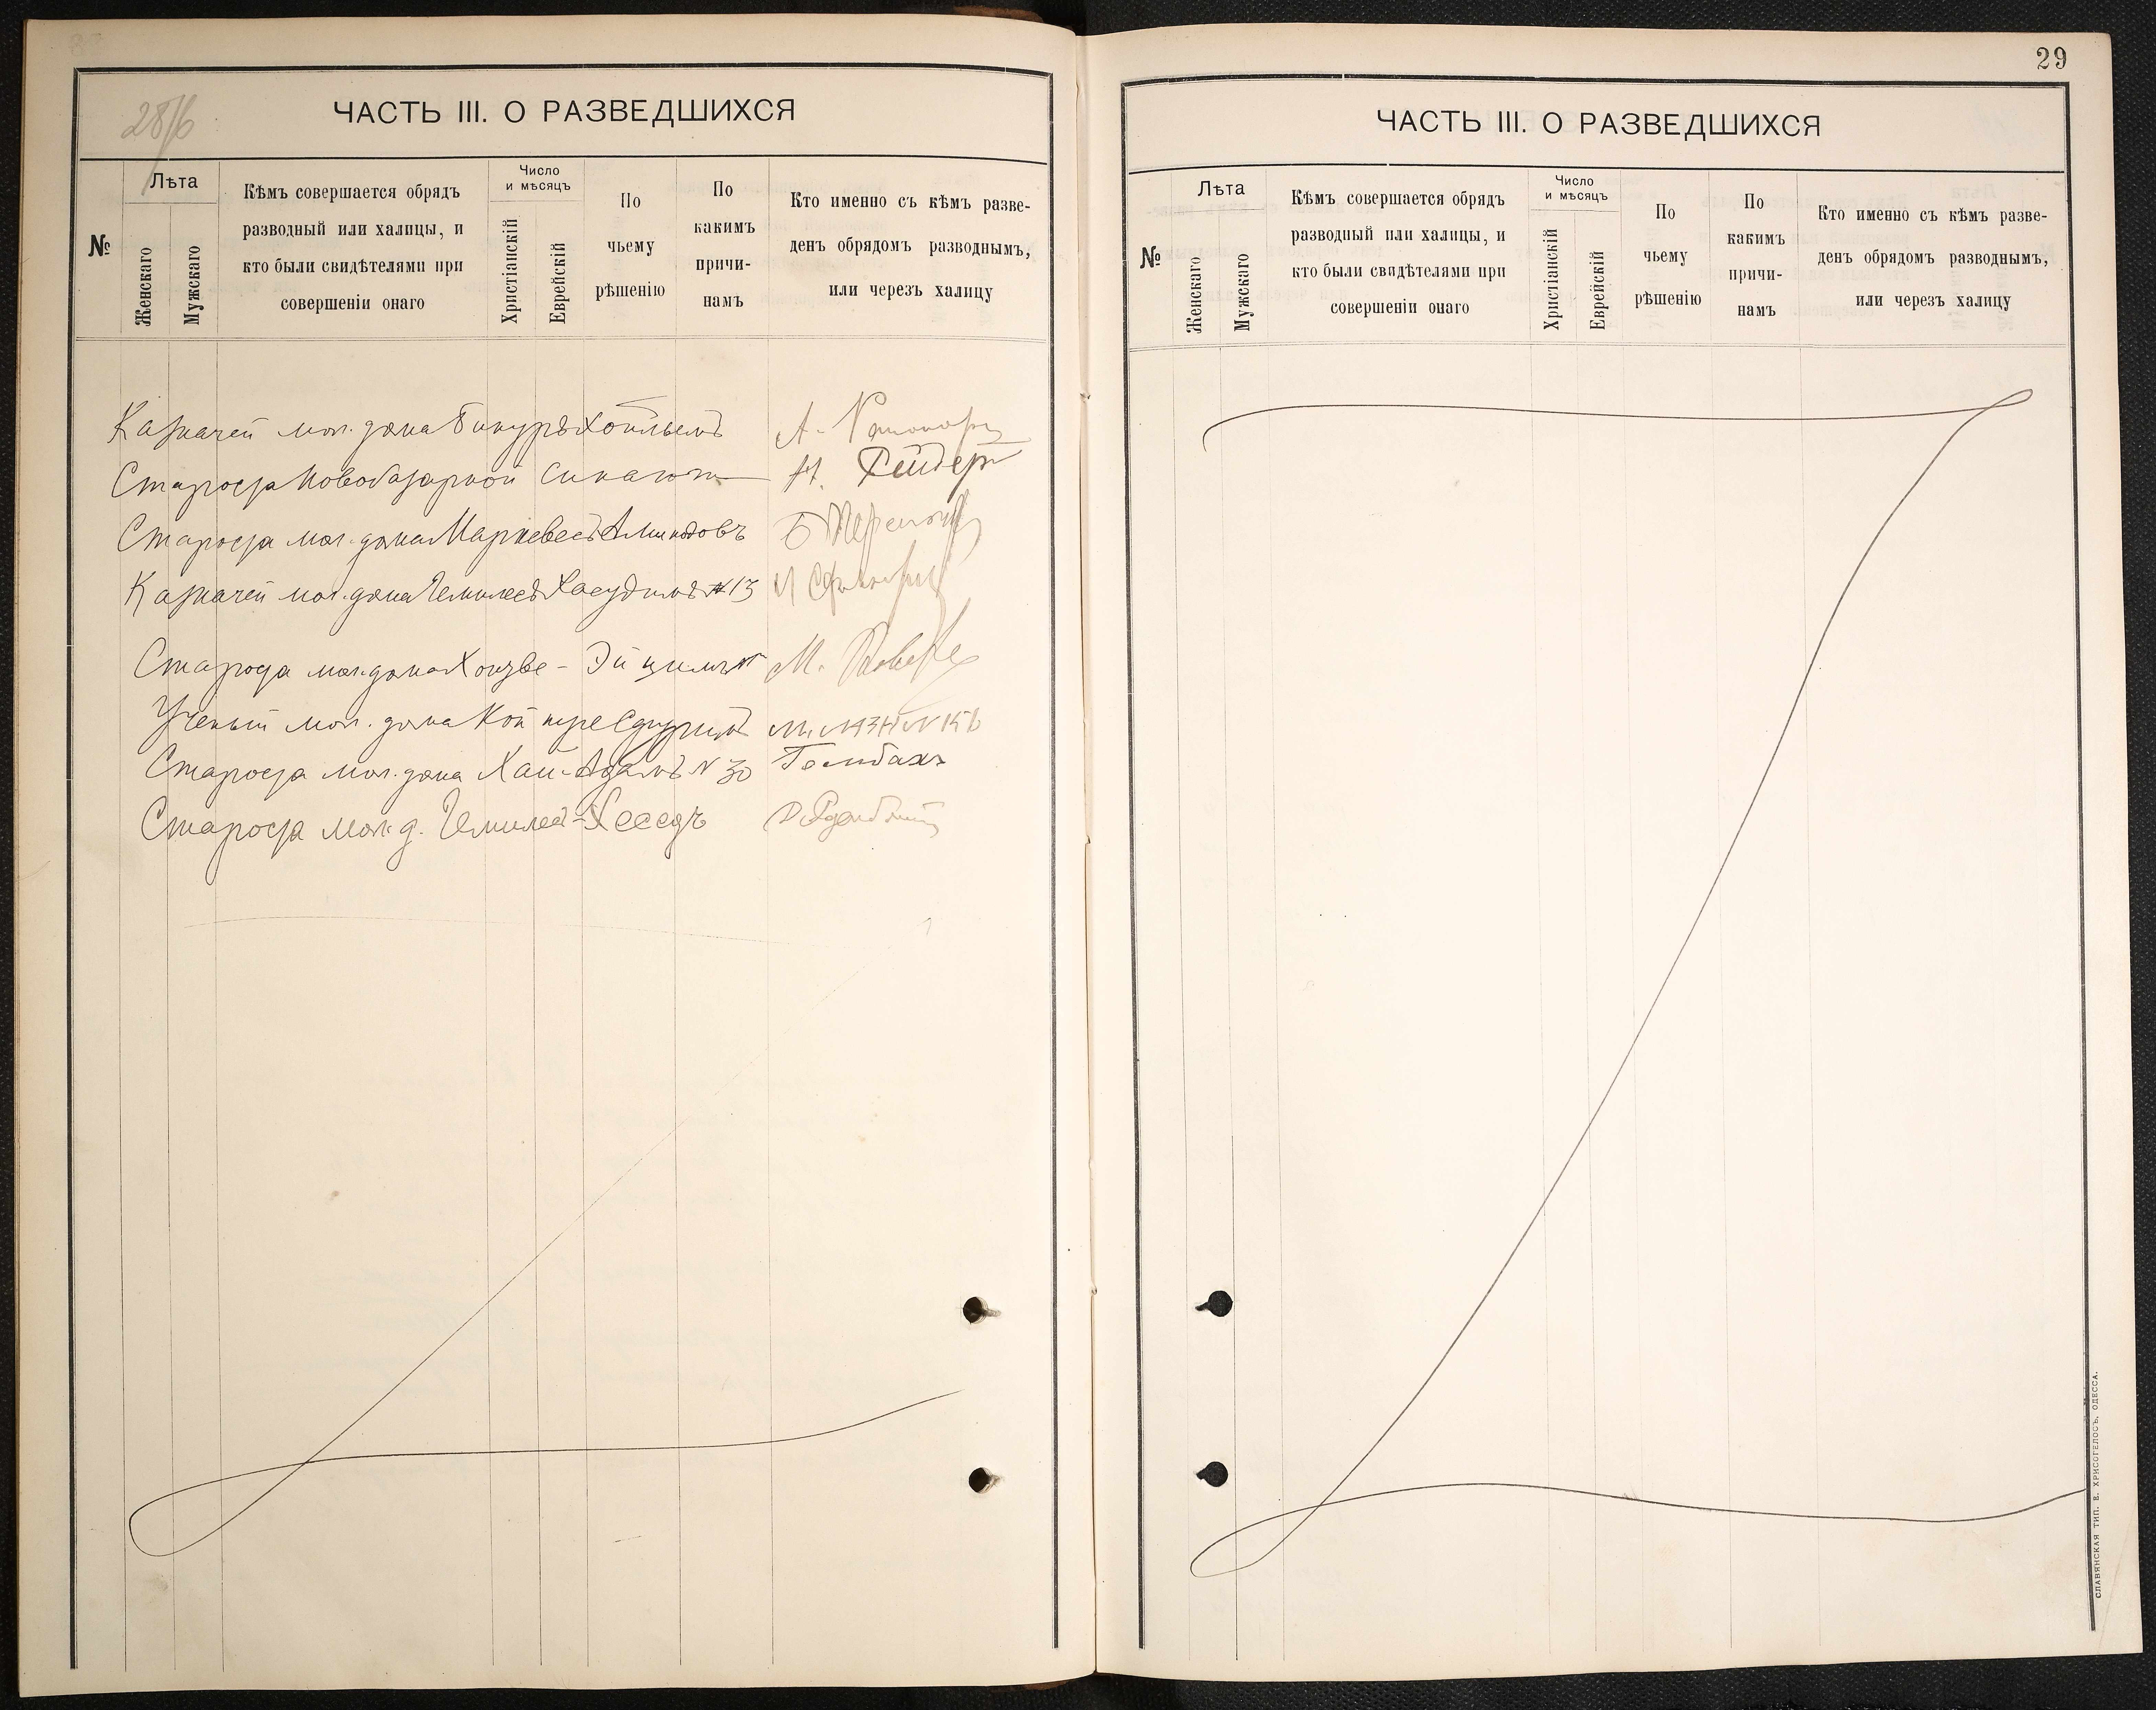 28/б
ЧАСТЬ III. О РАЗВЕДШИХСЯ
№
Лѣта
Женскаго
Мужскаго
Кѣмъ совершается обрядъ
разводный или халицы, и
кто были свидѣтелями при
совершеніи онаго
Число
и мѣсяцъ
Христіанскій
Еврейскій
По
чьему
рѣшенію
По
какимъ
причи-
намъ
Кто именно съ кѣмъ разве-
денъ обрядомъ разводнымъ,
или черезъ халицу
Казначей мол. дома Бикуръ Хойлымъ А.
Староста Новобазарной синагоги Н.
Староста мол. дома
Казначей мол. дома Гемилесъ Хасудимъ № 13
Староста мол. дома М.
Ученый мол. дома М.
Староста мол. дома Хаи-Адамъ № 30
Староста мол. д. Гемилес-Хеседъ
29
ЧАСТЬ III. О РАЗВЕДШИХСЯ
№
Лѣта
Женскаго
Мужскаго
Кѣмъ совершается обрядъ
разводный или халицы, и
кто были свидѣтелями при
совершеніи онаго
Число
и мѣсяцъ
Христіанскій
Еврейскій
По
чьему
рѣшенію
По
какимъ
причи-
намъ
Кто именно съ кѣмъ разве-
денъ обрядомъ разводнымъ,
или черезъ халицу
СЛАВЯНСКАЯ ТИП. Е. ХРИСОГЕЛОСЪ, ОДЕССА.